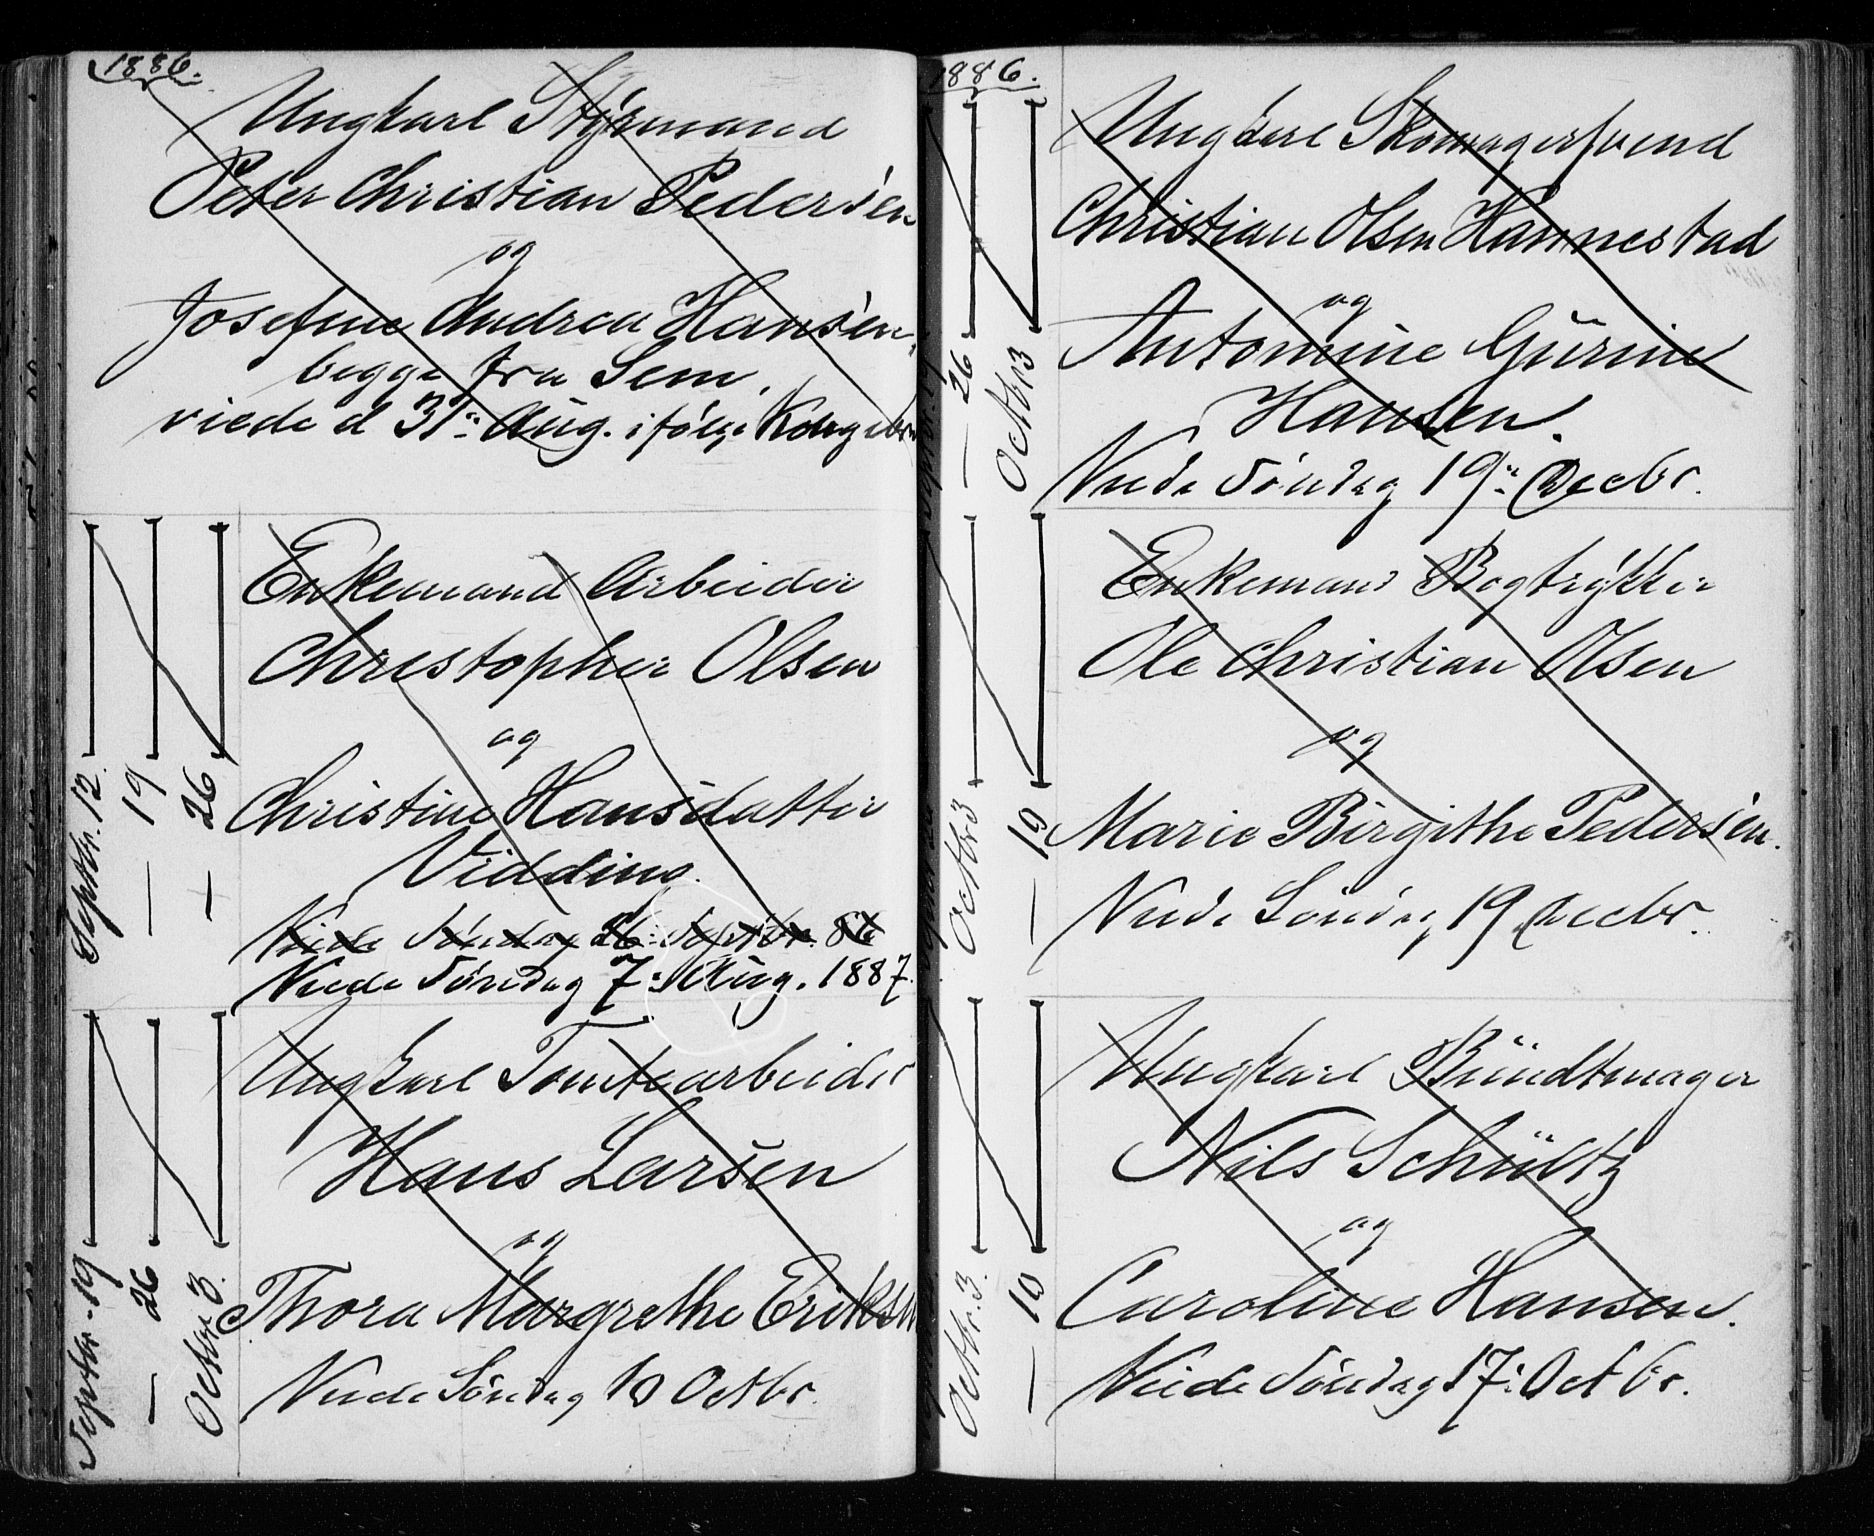 1886.
Ungkarl Styrmand
Peter Christian Pedersen
og
Josefine Andrea Hansen,
begge fra Sem.
viede d 31te Aug. ifølge Kongebr
Septbr. 12.
— 19
— 26
Enkemand Arbeider
Christopher Olsen
og
Christine Hansdatter
Vidding.
Viede Søndag 26: Septbr. 86
Viede Søndag 7: Aug. 1887.
Septbr. 19
— 26
Octbr 3.
Ungkarl Tomtearbeider
Hans Larsen
og
Thora Margrethe Eriksen
Viede Søndag 10 Octbr.
1886.
— 26
Octbr 3
Ungkarl Skomagersvend
Christian Olsen Hannestad
og
Antomine Gurine
Hansen.
Viede Søndag 19de Decbr.
Octbr 3
— 10
Enkemand Bogtrykker
Ole Christian Olsen
og
Marie Birgithe Pedersen.
Viede Søndag 19 Decbr.
Octbr. 3.
— 10
Ungkarl Bundtmager
Nils Schultz
og
Caroline Hansen.
Viede Søndag 17: Octbr.